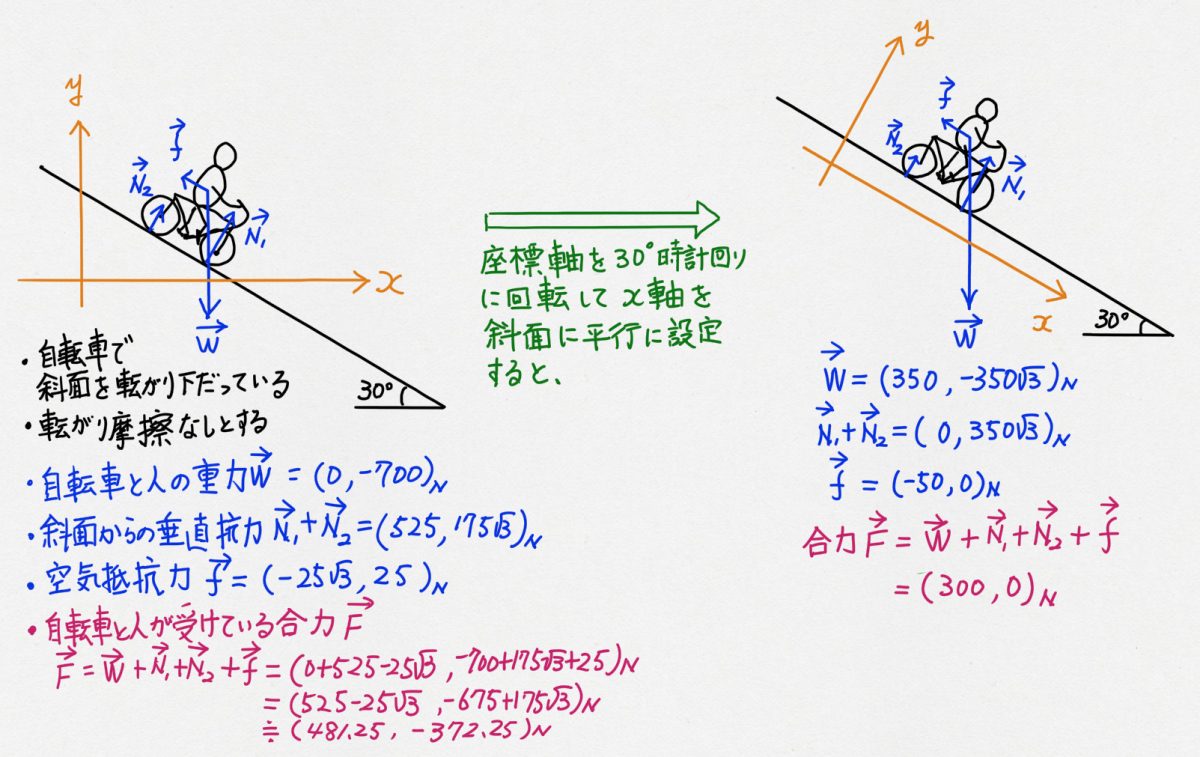 y
f⃗
N⃗₂
N⃗₁
x
W⃗
30°
・自転車で
斜面を転がり下だっている
・転がり摩擦なしとする
・自転車と人の重力W⃗ = (0, -700)N
・斜面からの垂直抗力 N⃗₁+N⃗₂=(525, 175√3)N
・空気抵抗力 f⃗ = (-25√3, 25)N
・自転車と人が受けている合力 F⃗
F⃗ = W⃗+N⃗₁+N⃗₂+f⃗ = (0+525-25√3, -700+175√3+25)N
= (525-25√3, -675+175√3)N
≒ (481.25, -372.25)N
座標軸を30°時計回り
に回転して x軸を
斜面に平行に設定
すると、
y
f⃗
N⃗₂
N⃗₁
x
30°
W⃗
W⃗ = (350, -350√3)N
N⃗₁+N⃗₂ = (0, 350√3)N
f⃗ = (-50, 0)N
合力 F⃗ = W⃗+N⃗₁+N⃗₂+f⃗
= (300, 0)N